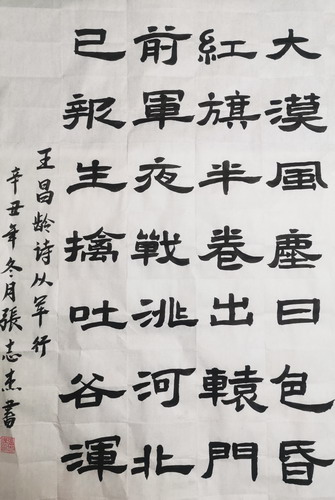 大漠風塵日包昏
紅旗半卷出轅門
前軍夜戰洮河北
已報生擒吐谷渾
王昌齡诗从军行
辛丑年冬月張志杰書